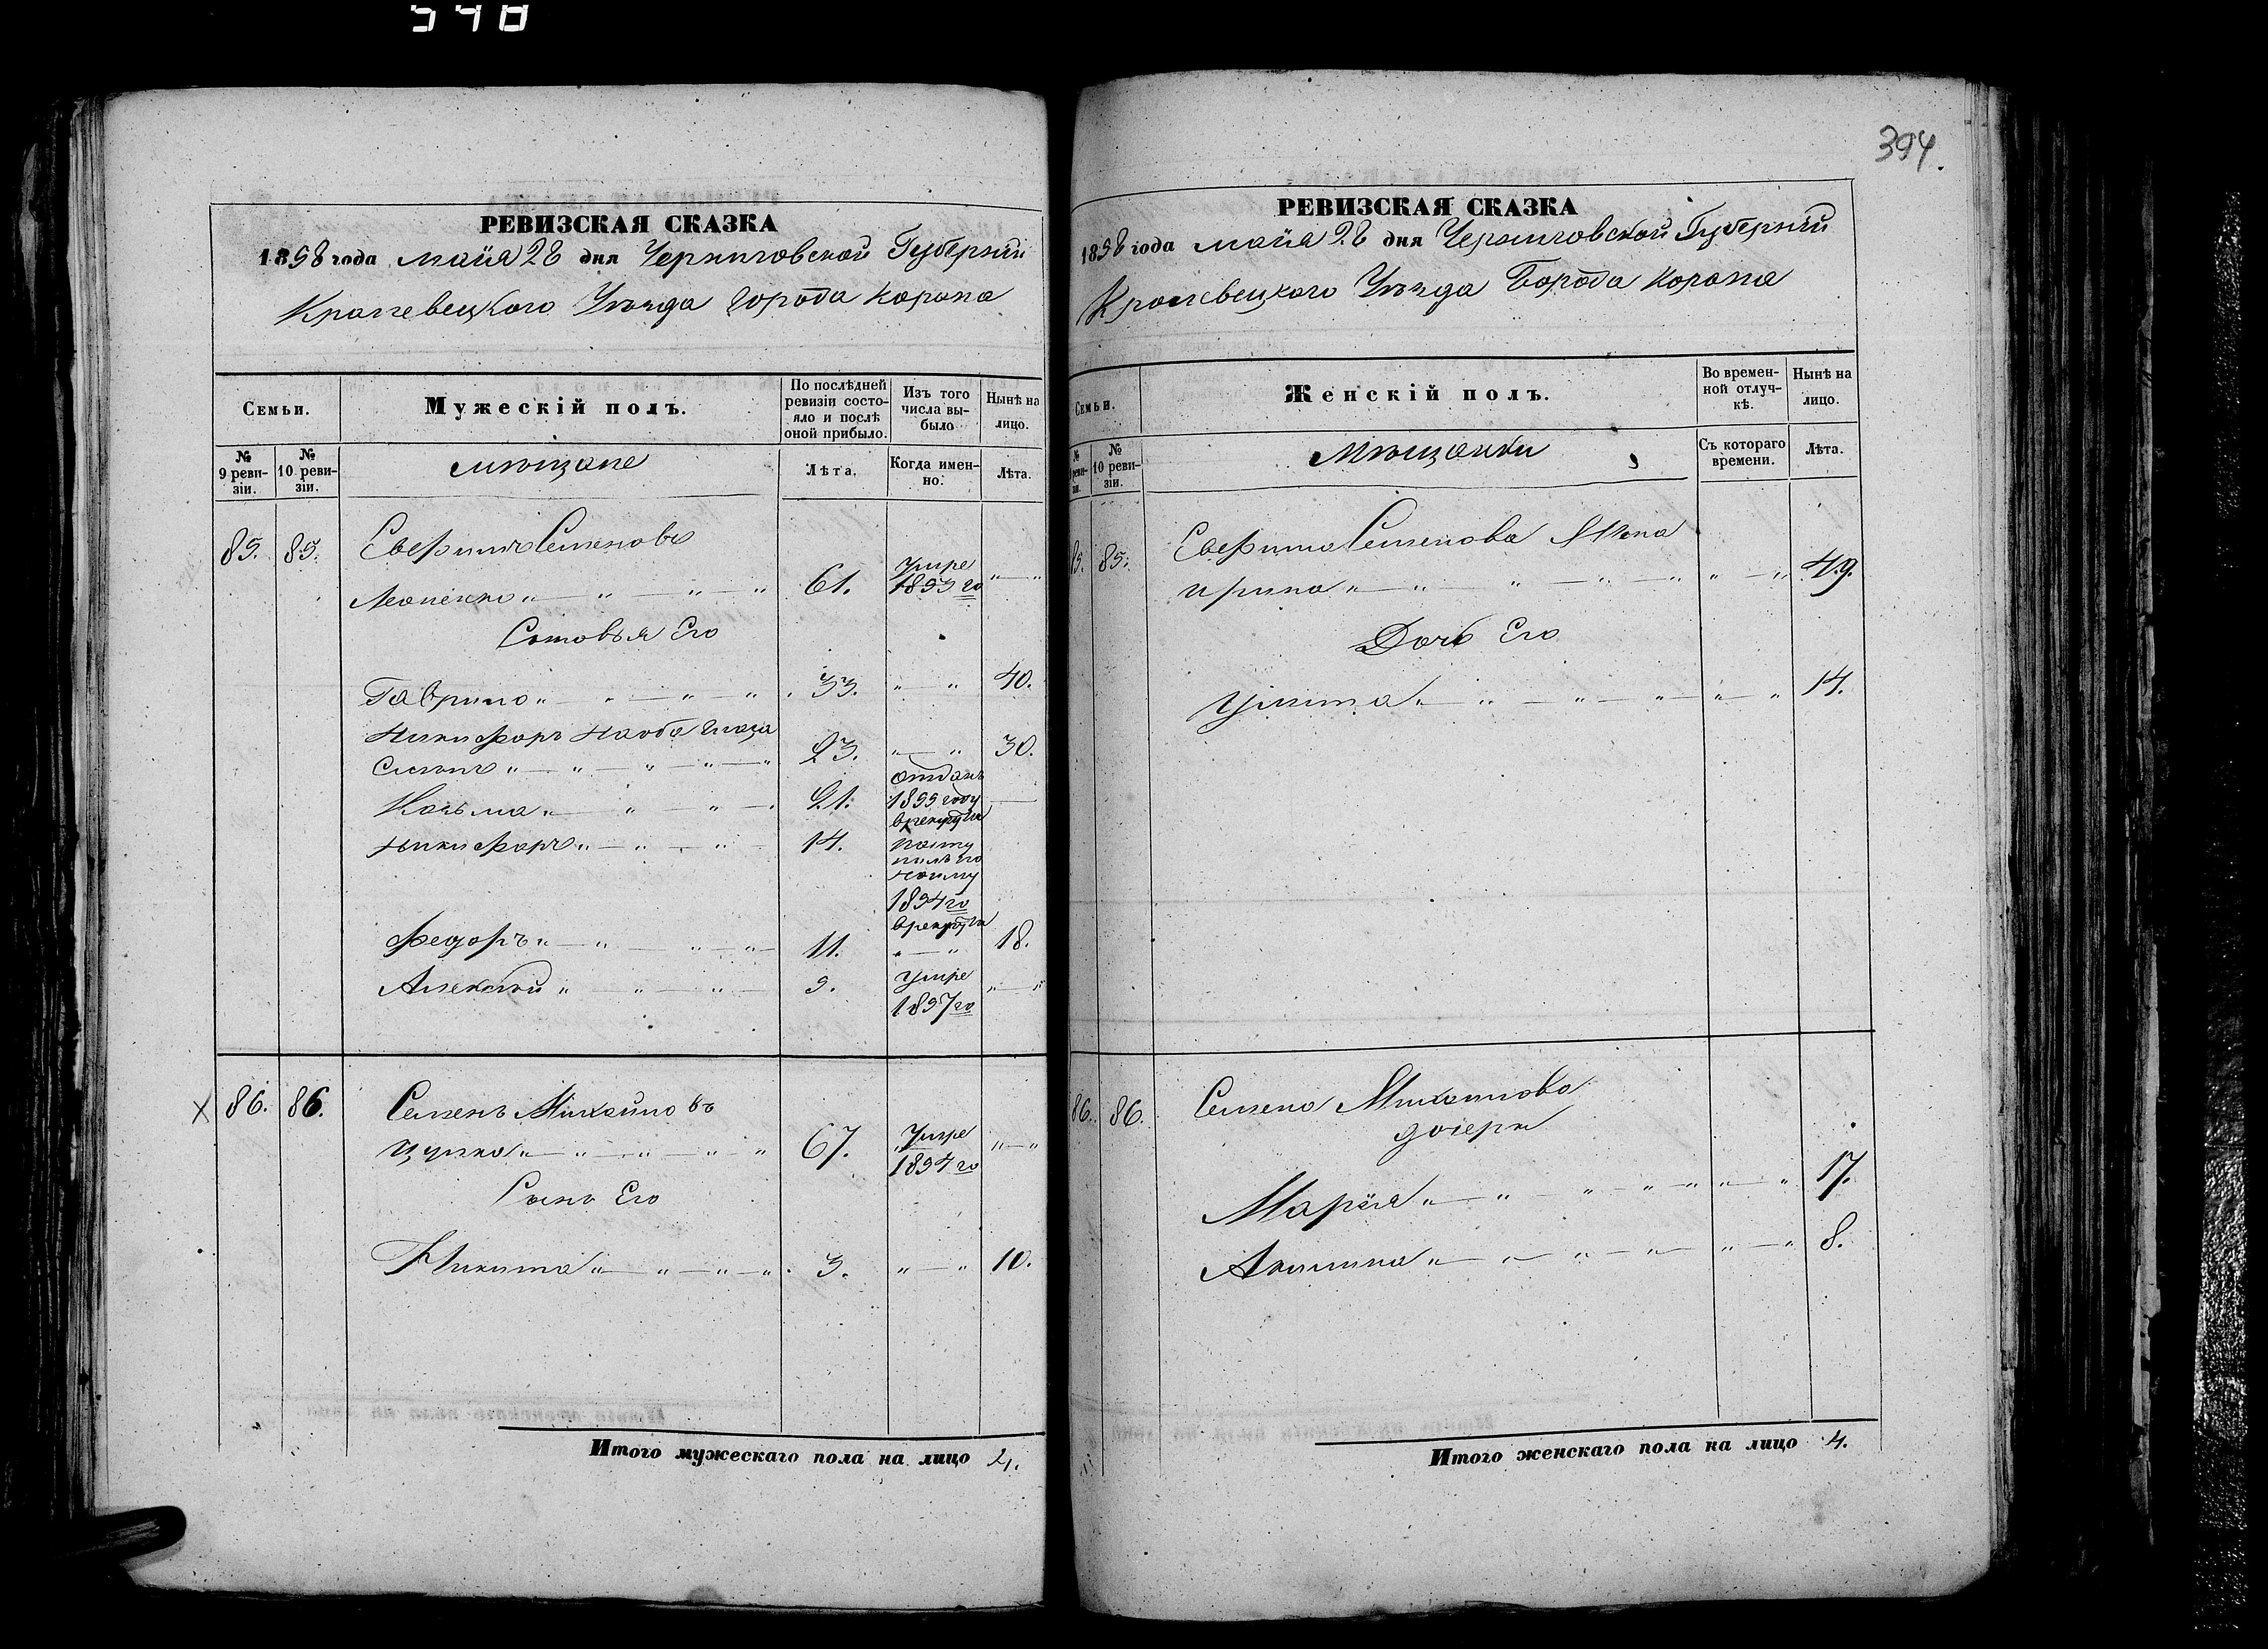 548
394.
РЕВИЗСКАЯ СКАЗКА
1858 года маия 28 дня Черниговской Губерніи
Кролевецкого Уѣзда города Коропа
Семьи.
Мужескій полъ.
По послѣдней ревизіи состояло и послѣ оной прибыло.
Изъ того числа выбыло
Нынѣ на лицо.
№ 9 ревизіи.
№ 10 ревизіи.
мѣщане
Лѣта.
Когда именно.
Лѣта.
85. 85. Евфимъ Семеновъ
61. Умре 1853 го
Сыновья Его
Гаврило 33. 40.
Никифоръ
23. 30.
Козьма 21. отданъ 1855 году в рекруты
Никифоръ 14.
1854 го
в рекруты
Федоръ 11. 18.
Алексѣй 9. Умре 1857 го
86. 86. Семенъ Михайловъ
67. Умре 1854 го
Сынъ Его
Никита 3. 10.
Итого мужескаго пола на лицо 4.
РЕВИЗСКАЯ СКАЗКА
1858 года маия 28 дня Черниговской Губерніи
Кролевецкого Уѣзда Города Коропа
Семьи.
Женскій полъ.
Во временной отлучкѣ.
Нынѣ на лицо.
№ 10 ревизіи.
Мѣщанки
Съ котораго времени.
Лѣта.
85. 85. Евфима Семенова Жена
Ирина 49.
Дочь Его
Улита 14.
86. 86. Семена Михайлова
дочери
Марія 17.
Акилина 8.
Итого женскаго пола на лицо 4.